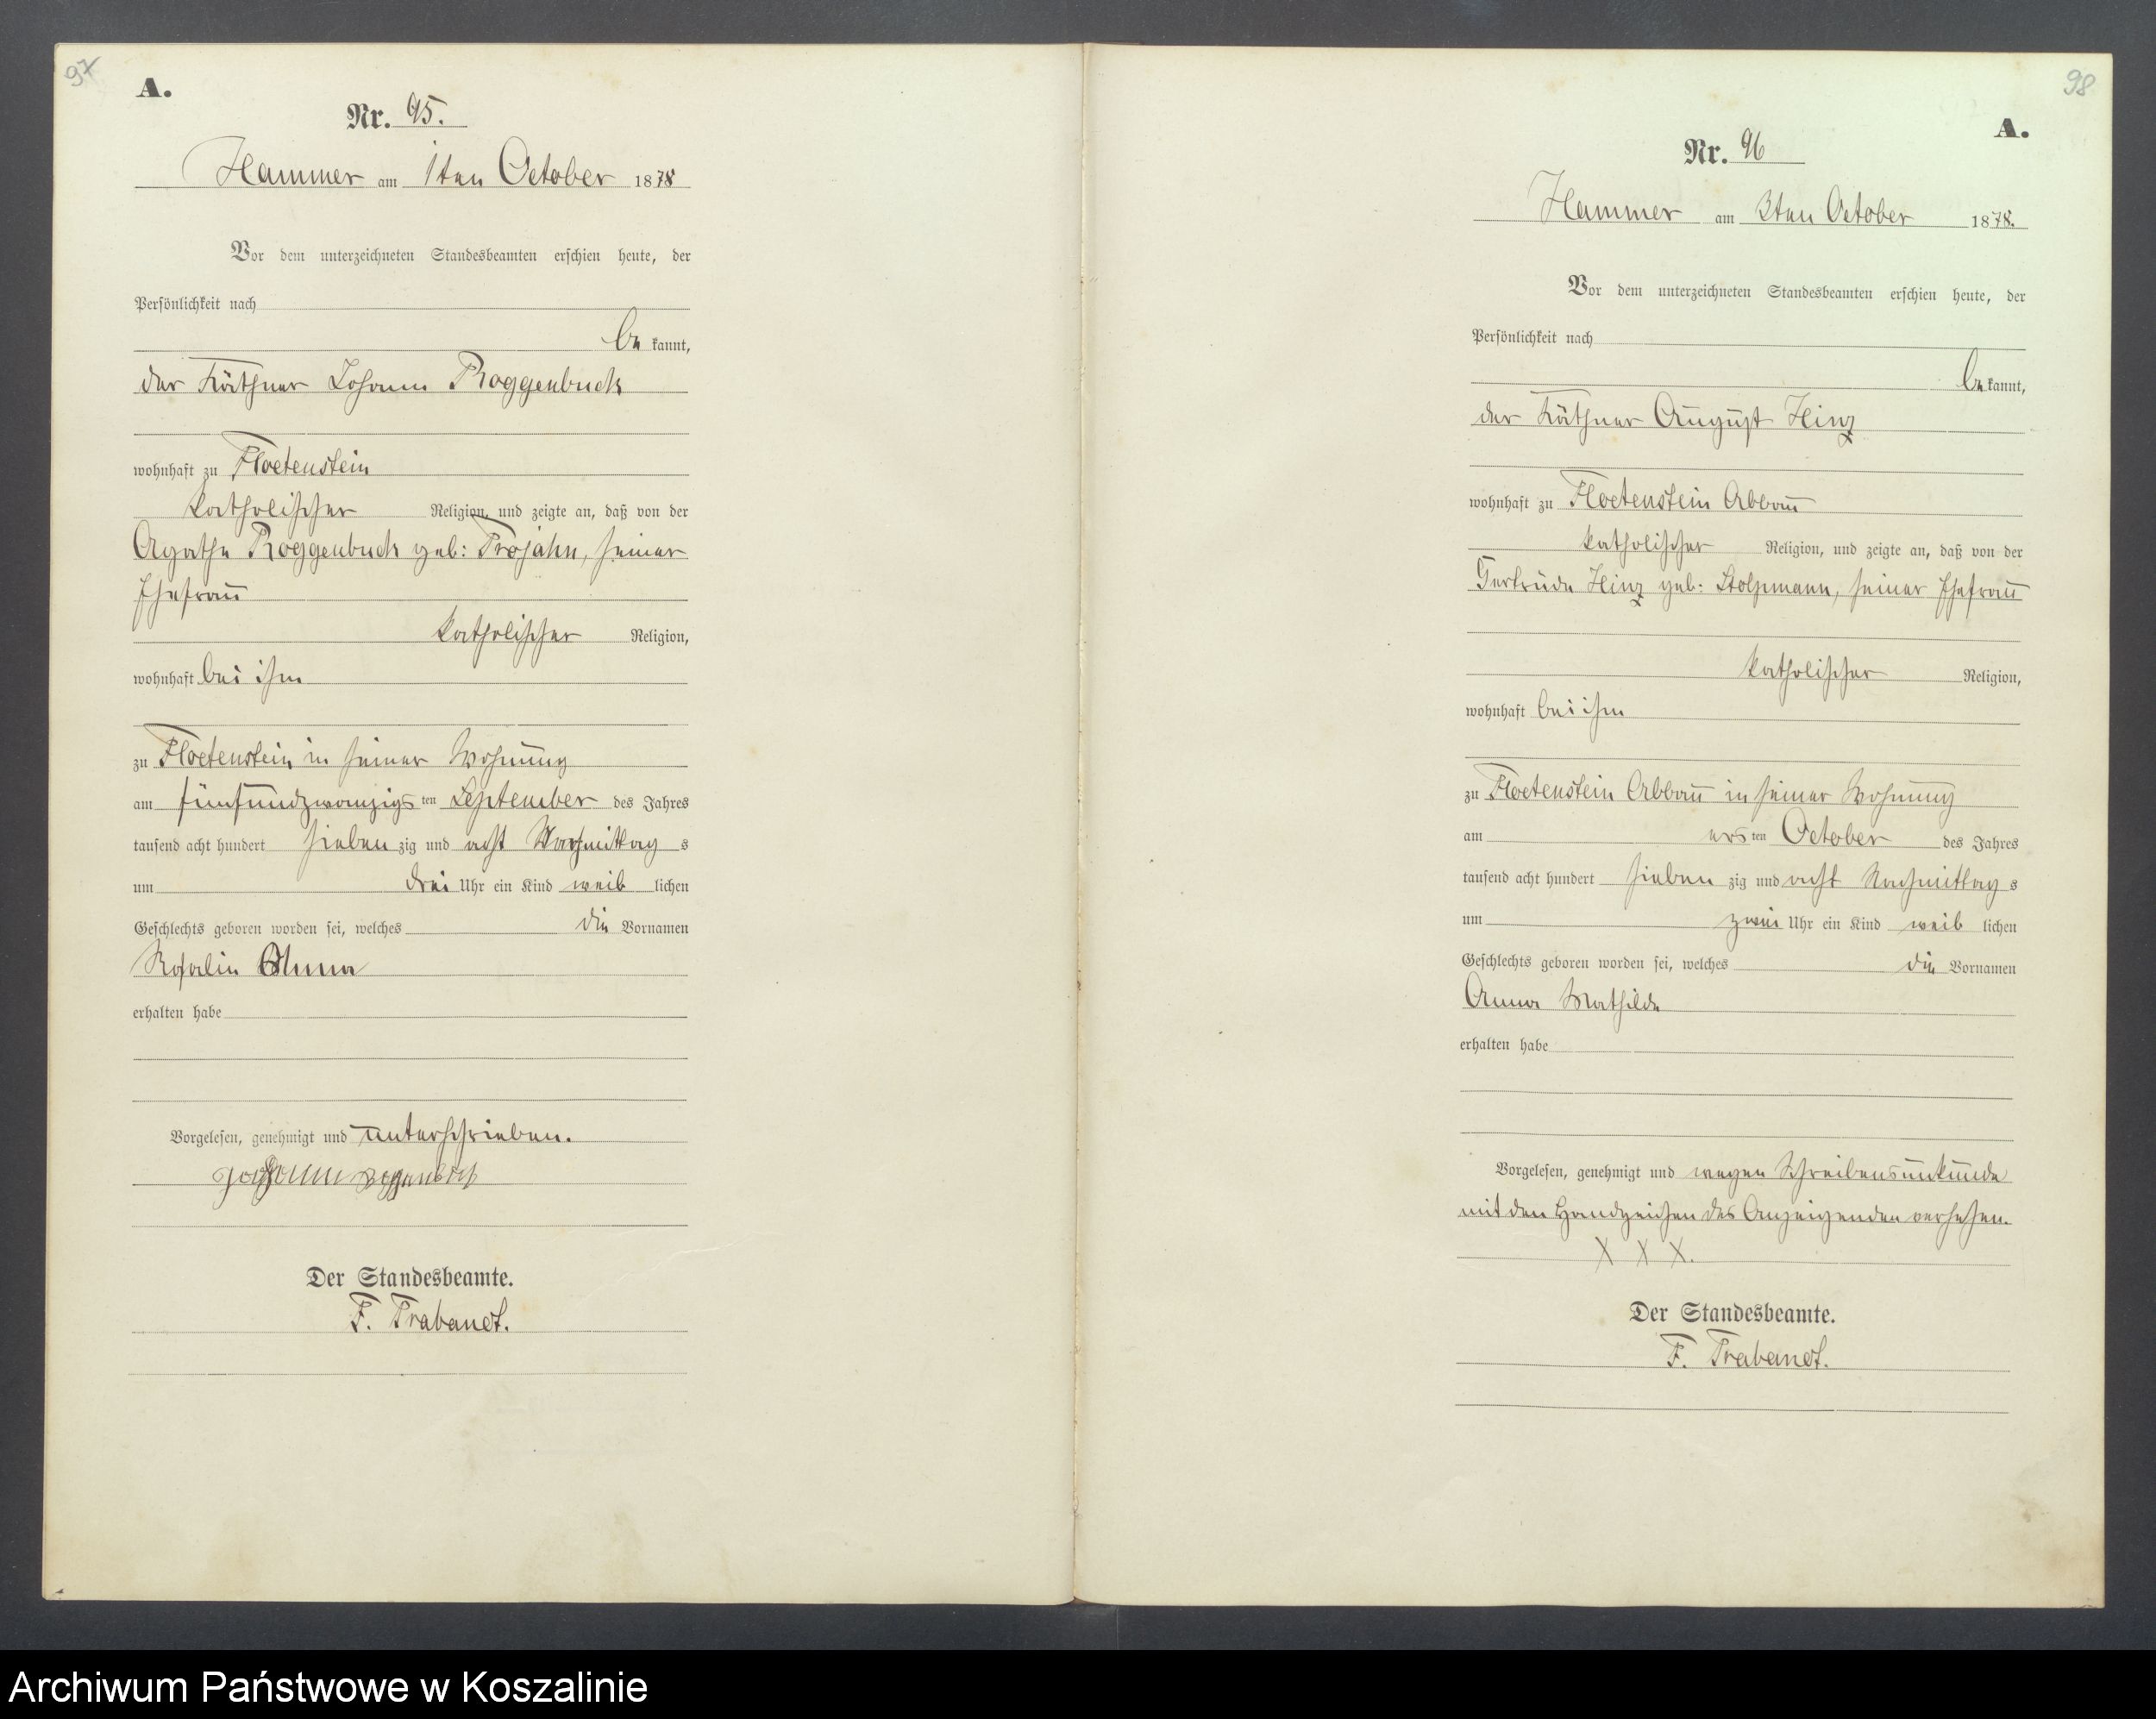 97
A.
Nr. 95.
Hammer am 1ten October 1878
Vor dem unterzeichneten Standesbeamten erschien heute, der
Persönlichkeit nach
be kannt,
der Käthner Johann Roggenbuck
wohnhaft zu Floetenstein
katholischer Religion, und zeigte an, daß von der
Agathe Roggenbuck geb: Trojahn, seiner
Ehefrau
katholischer Religion,
wohnhaft bei ihm
zu Floetenstein in seiner Wohnung
am fünfundzwanzigs ten September des Jahres
tausend acht hundert sieben zig und acht Nachmittag s
um drei Uhr ein Kind weib lichen
Geschlechts geboren worden sei, welches die Vornamen
Rosalie Anna
erhalten habe
Vorgelesen, genehmigt und unterschrieben.
Johann
Der Standesbeamte.
F. Trabandt.
98
A.
Nr. 96
Hammer am 3ten October 1878.
Vor dem unterzeichneten Standesbeamten erschien heute, der
Persönlichkeit nach
be kannt,
der Käthner August Hinz
wohnhaft zu Floetenstein Abbau
katholischer Religion, und zeigte an, daß von der
Gertrude Hinz geb: Stolpmann, seiner Ehefrau
katholischer Religion,
wohnhaft bei ihm
zu Floetenstein Abbau in seiner Wohnung
am ers ten October des Jahres
tausend acht hundert sieben zig und acht Nachmittag s
um zwei Uhr ein Kind weib lichen
Geschlechts geboren worden sei, welches die Vornamen
Anna Mathilde
erhalten habe
Vorgelesen, genehmigt und wegen Schreibensunkunde
mit den Handzeichen des Anzeigenden versehen.
X X X.
Der Standesbeamte.
F. Trabandt.
Archiwum Państwowe w Koszalinie